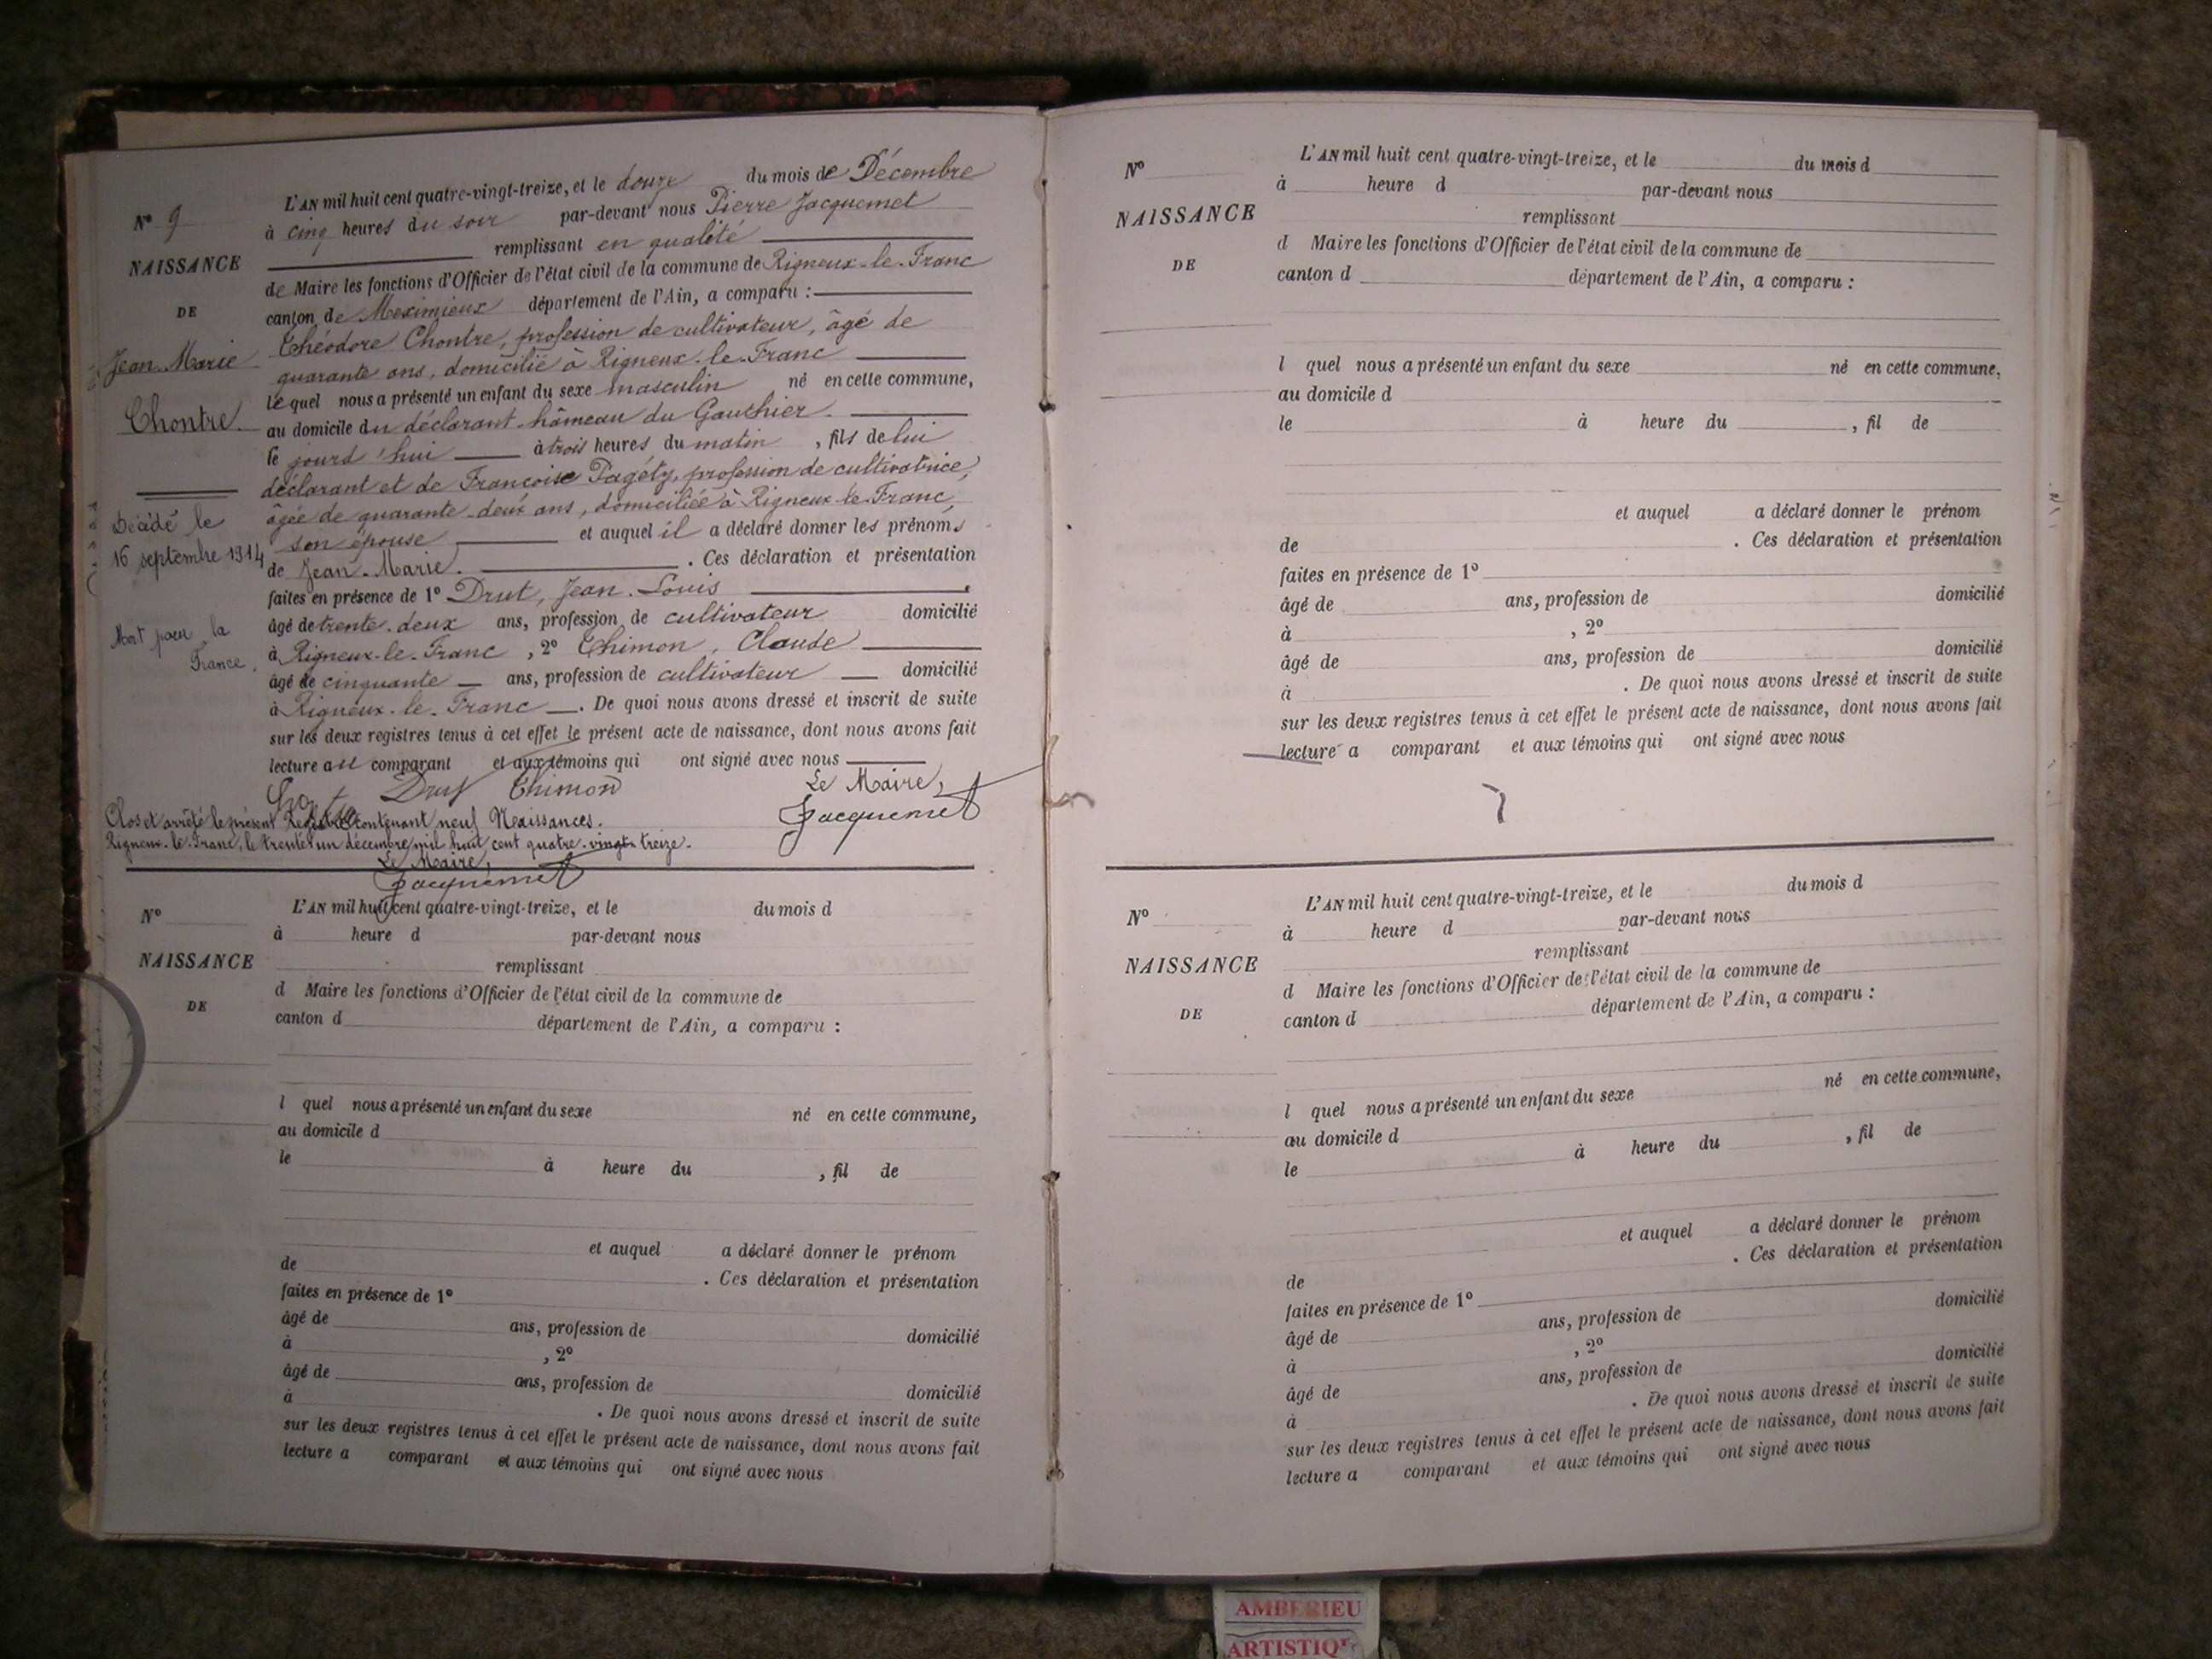 N° 9
NAISSANCE
DE
Jean-Marie
Chontre.
Décédé le
16 septembre 1914
Mort pour la
France.
L'AN mil huit cent quatre-vingt-treize, et le douze du mois de Décembre
à cinq heures du soir par-devant nous Pierre Jacquemet
remplissant en qualité
de Maire les fonctions d'Officier de l'état civil de la commune de Rigneux-le-Franc
canton de Meximieux département de l'Ain, a comparu :
Théodore Chontre, profession de cultivateur, âgé de
quarante ans, domicilié à Rigneux-le-Franc
lequel nous a présenté un enfant du sexe masculin né en cette commune,
au domicile du déclarant hâmeau du Gauthier.
le jourd'hui à trois heures du matin, fils de lui
déclarant et de Françoise Pagéty, profession de cultivatrice,
âgée de quarante-deux ans, domiciliée à Rigneux-le-Franc,
son épouse et auquel il a déclaré donner les prénoms
de Jean-Marie. . Ces déclaration et présentation
faites en présence de 1° Drut, Jean-Louis ,
âgé de trente-deux ans, profession de cultivateur domicilié
à Rigneux-le-Franc , 2° Thimon, Claude
âgé de cinquante ans, profession de cultivateur domicilié
à Rigneux-le-Franc . De quoi nous avons dressé et inscrit de suite
sur les deux registres tenus à cet effet le présent acte de naissance, dont nous avons fait
lecture au comparant et aux témoins qui ont signé avec nous
Drut Thimon Le Maire,
Jacquemet
Clos et arrêté le présent Registre contenant neuf Naissances.
Rigneux-le-Franc, le trente un décembre mil huit cent quatre-vingt-treize.
Le Maire,
Jacquemet
N°
NAISSANCE
DE
L'AN mil huit cent quatre-vingt-treize, et le du mois d
à heure d par-devant nous
remplissant
d Maire les fonctions d'Officier de l'état civil de la commune de
canton d département de l'Ain, a comparu :
l quel nous a présenté un enfant du sexe né en cette commune,
au domicile d
le à heure du , fil de
et auquel a déclaré donner le prénom
de . Ces déclaration et présentation
faites en présence de 1°
âgé de ans, profession de domicilié
à , 2°
âgé de ans, profession de domicilié
à . De quoi nous avons dressé et inscrit de suite
sur les deux registres tenus à cet effet le présent acte de naissance, dont nous avons fait
lecture a comparant et aux témoins qui ont signé avec nous
N°
NAISSANCE
DE
L'AN mil huit cent quatre-vingt-treize, et le du mois d
à heure d par-devant nous
remplissant
d Maire les fonctions d'Officier de l'état civil de la commune de
canton d département de l'Ain, a comparu :
l quel nous a présenté un enfant du sexe né en cette commune,
au domicile d
le à heure du , fil de
et auquel a déclaré donner le prénom
de . Ces déclaration et présentation
faites en présence de 1°
âgé de ans, profession de domicilié
à , 2°
âgé de ans, profession de domicilié
à . De quoi nous avons dressé et inscrit de suite
sur les deux registres tenus à cet effet le présent acte de naissance, dont nous avons fait
lecture a comparant et aux témoins qui ont signé avec nous
N°
NAISSANCE
DE
L'AN mil huit cent quatre-vingt-treize, et le du mois d
à heure d par-devant nous
remplissant
d Maire les fonctions d'Officier de l'état civil de la commune de
canton d département de l'Ain, a comparu :
l quel nous a présenté un enfant du sexe né en cette commune,
au domicile d
le à heure du , fil de
et auquel a déclaré donner le prénom
de . Ces déclaration et présentation
faites en présence de 1°
âgé de ans, profession de domicilié
à , 2°
âgé de ans, profession de domicilié
à . De quoi nous avons dressé et inscrit de suite
sur les deux registres tenus à cet effet le présent acte de naissance, dont nous avons fait
lecture a comparant et aux témoins qui ont signé avec nous
AMBERIEU
ARTISTIQ